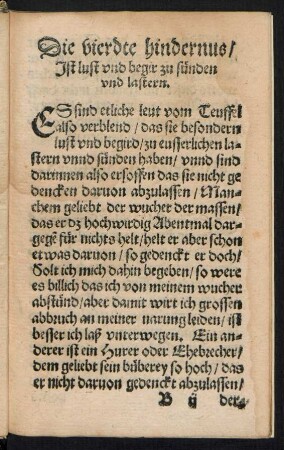 Die vierdte hindernus/
Ist lust vnd begir zu sünden
vnd lastern.
ES sind etliche leut vom Teuffel
also verblend/das sie besondern
lust vnd begird/zu eusserlichen la-
stern vnnd sünden haben/vnnd sind
darinnen also ersoffen das sie nicht ge
dencken daruon abzulassen/Man-
chem geliebt der wucher der massen/
das er dz hochwirdig Abentmal dar-
gegē für nichts helt/helt er aber schon
etwas daruon/so gedenckt er doch/
Solt ich mich dahin begeben/so were
es billich das ich von meinem wucher
abstünd/aber damit wirt ich grossen
abbruch an meiner narung leiden/ist
besser ich laß vnterwegen. Ein an-
derer ist ein Hurer oder Ehebrecher/
dem geliebt sein büberey so hoch/das
er nicht daruon gedenckt abzulassen/
B ij der-